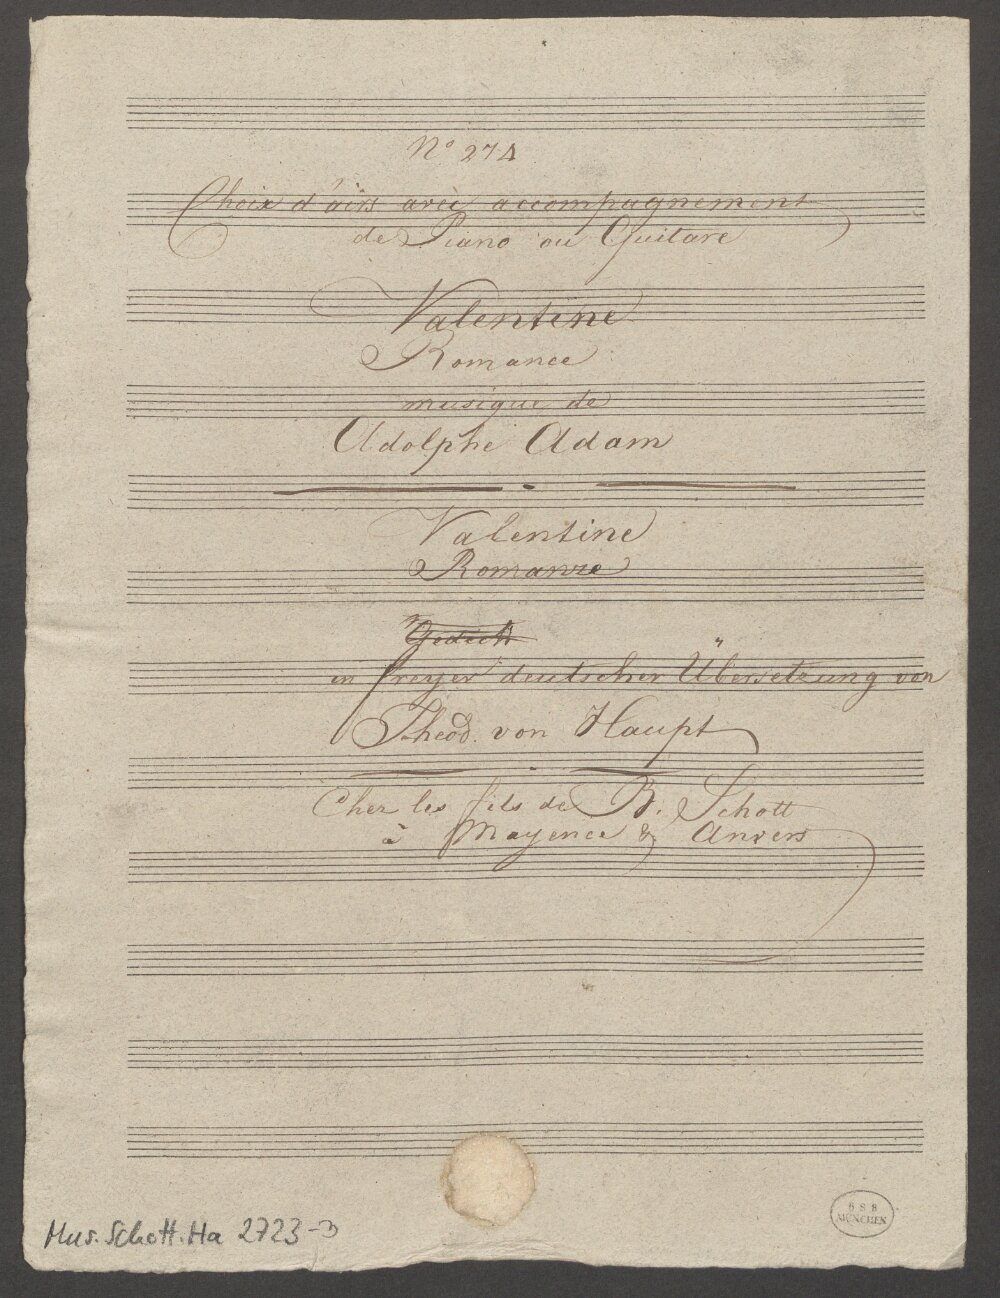 No 274
Choix d'airs avec accompagnement
de Piano ou Guitare
Valentine
Romance
musique de
Adolphe Adam
Valentine
Romanze
Gedicht
in freyer deutscher Übersetzung von
Theod. von Haupt
Chez les fils de B. Schott
à Mayence & Anvers
Mus. Schott. Ha 2723-3
BSB
MÜNCHEN